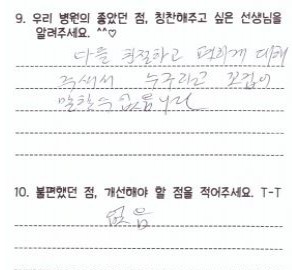 9. 우리 병원의 좋았던 점, 칭찬해주고 싶은 선생님을
알려주세요. ^^♡
다들 친절하고 편하게 대해
주셔서 누구라고 꼬집어
말할 수 없습니다
10. 불편했던 점, 개선해야 할 점을 적어주세요. T-T
없음